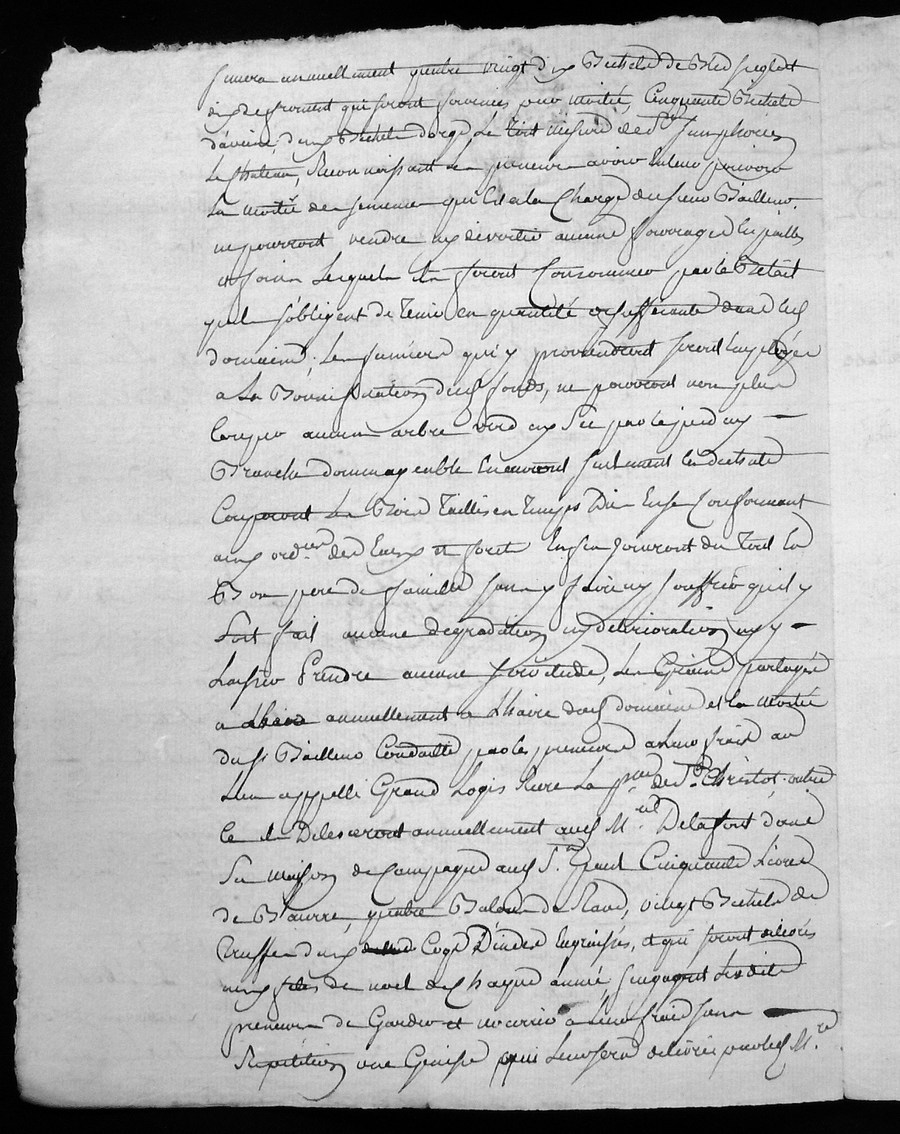 semera annuellement quatre vingt dix Bichets de Bled seiglet
dix de froment qui seront fournies pour moitié, Cinquante Bichets
d'avoine, deux Bichets d'orge Le Tout mesure de St Simphorien
Le Chateau, Reconnoissant les preneurs avoir
La moitié des semences qui Est a la Charge du sieur Bailleur.
ne pourront vendre ny divertir aucuns fourrages En pailles
et foins Lesquels Seront Consommés par le Betail
quils s'obligent de Tenir en quantité et suffisante dans les
domaine; Les fumiers qui y proviendront seront Employés
a La Bonnification desd fonds, ne pourront non plus
Couper aucun arbre verd ny sec par le pied ny
Branche dommageable En auront seulement la
Couperont Les Bois Taillis en Temps Du En se Conformant
aux ordces des Eaux et forets Enfin Jouiront du Tout En
Bon pere de famille sans y faire ny souffrir qu'il y
Soit fait aucune degradation ny deterioration ny y
Laisser Prendre aucune servitude, Les Grains partagés
a annuellement a L'haire desd domaine et la moitié
dud sr Bailleur Conduitte par les preneurs a Leurs frais au
Lieu appellé Grand Logis Riere La psse de St Christot. outre
ce Ils Delivreront annuellement auxd Mrs Delafont dans
Sa maison de Campagne auxd St Cinquante Livres
de Baurre, quatre Balons de Raves, vingt Bichets de
Truffes deux Cogs D'indes Engraissés, et qui seront delivrés
aux fetes de noel de Chaque année s'engagent Lesdits
preneurs de Garder et nourrir a Leurs frais sans
Repetition une Genisse qui Leur sera delivrée par lesd Mrs